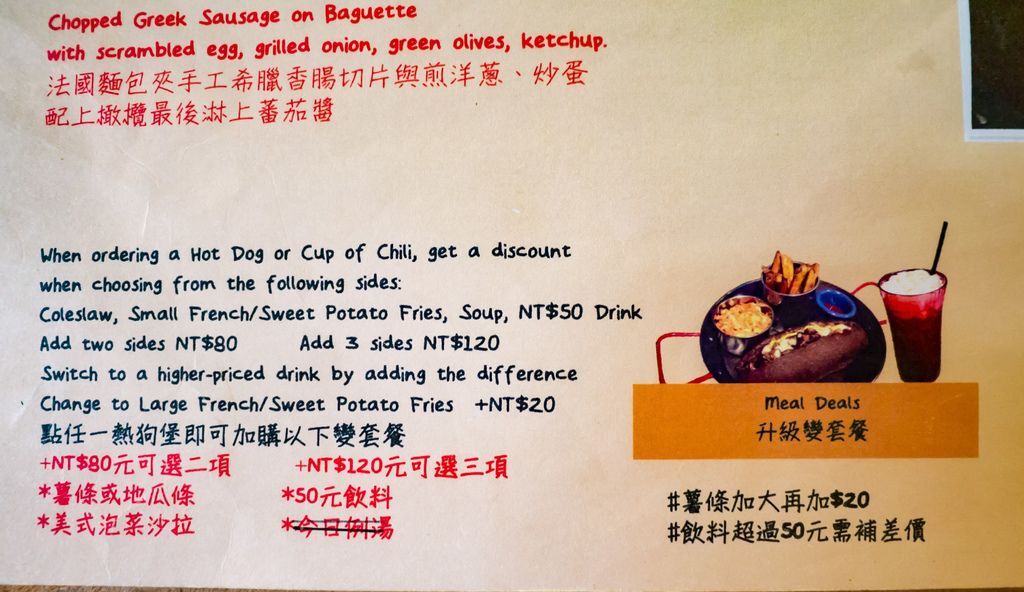 Chopped Greek Sausage on Baguette
with scrambled egg, grilled onion, green olives, ketchup.
法國麵包夾手工希臘香腸切片與煎洋蔥、炒蛋
配上橄欖最後淋上蕃茄醬
When ordering a Hot Dog or Cup of Chili, get a discount
when choosing from the following sides:
Coleslaw, Small French/Sweet Potato Fries, Soup, NT$50 Drink
Add two sides NT$80 Add 3 sides NT$120
Switch to a higher-priced drink by adding the difference
Change to Large French/Sweet Potato Fries +NT$20
點任一熱狗堡即可加購以下變套餐
+NT$80元可選二項 +NT$120元可選三項
*薯條或地瓜條 *50元飲料
*美式泡菜沙拉 *今日例湯
Meal Deals
升級變套餐
#薯條加大再加$20
#飲料超過50元需補差價